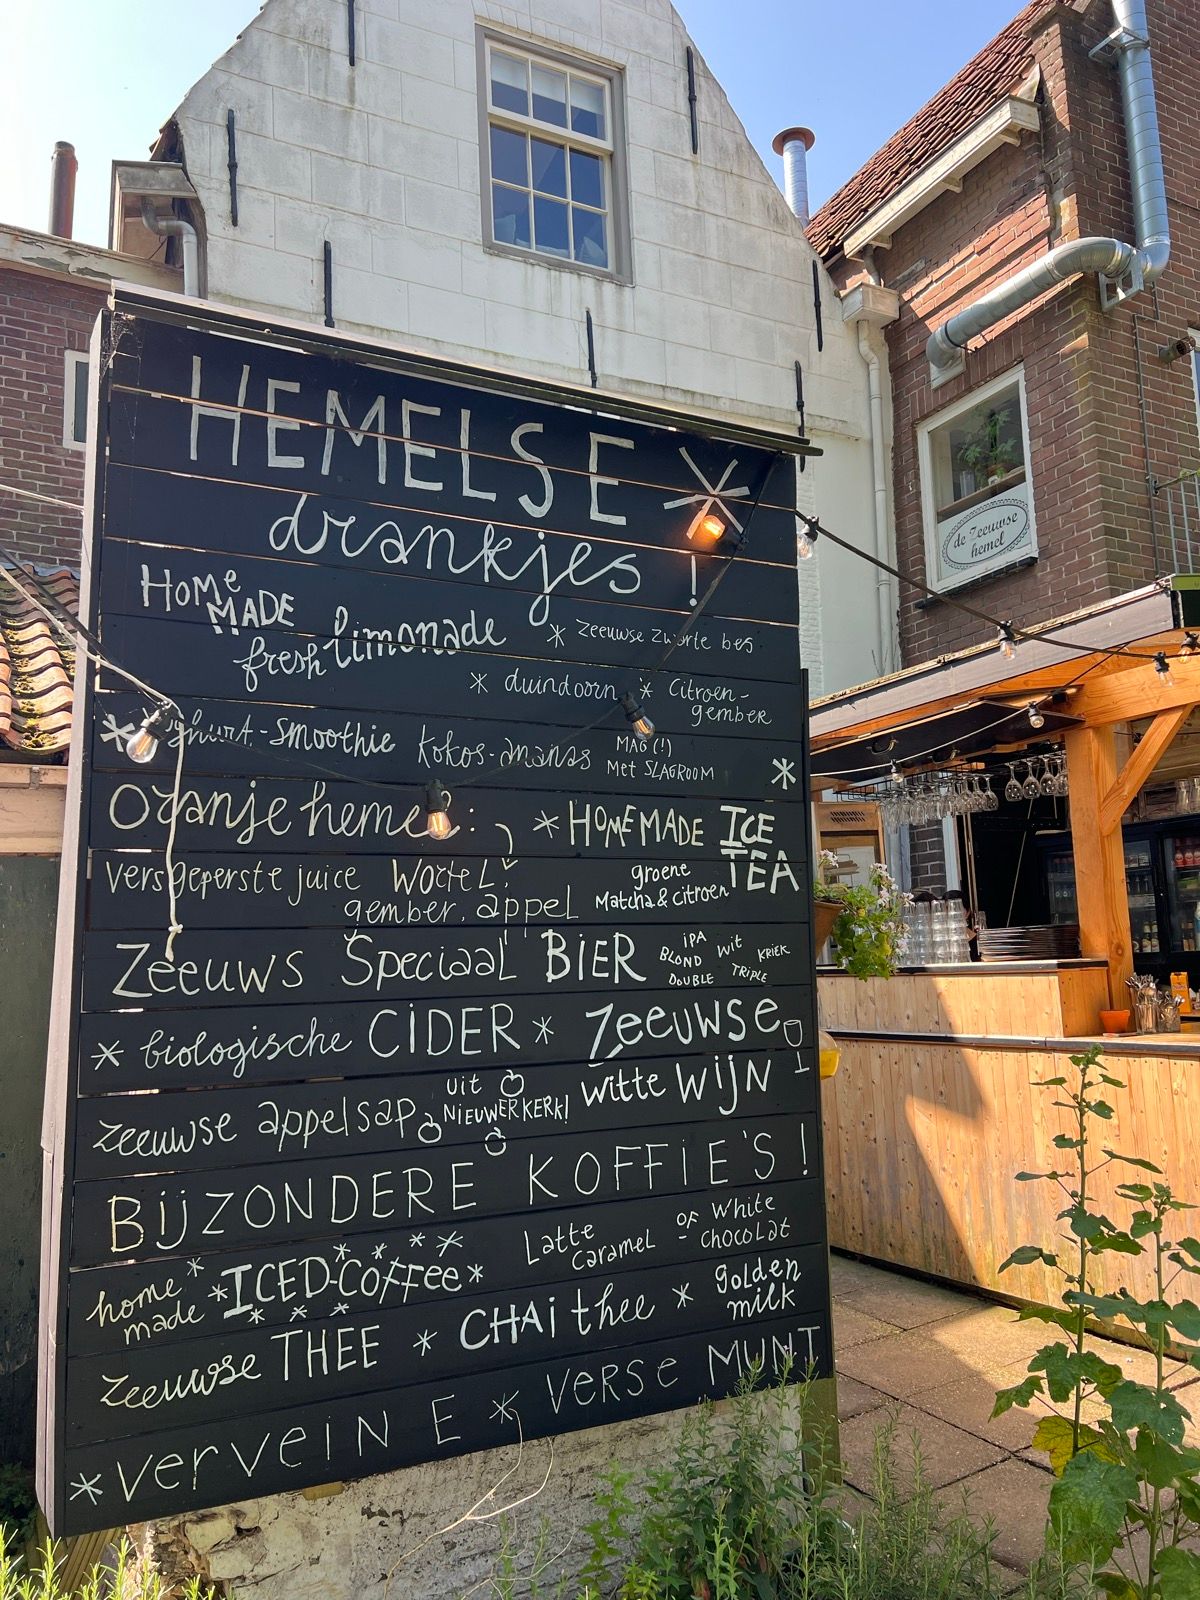 HEMELSE
drankjes !
HOMe MADE
fresh limonade * zeeuwse zwarte bes
* duindoorn * Citroen-
gember
-smoothie kokos-ananas MAG (!)
met SLAGROOM *
Oranje hemel: * HOMEMADE ICE TEA
versgeperste juice wortel, groene
gember, appel Matcha & citroen
Zeeuws Speciaal BIER IPA BLOND wit KRIEK DOUBLE TRIPLE
* biologische CIDER * Zeeuwse
zeeuwse appelsap uit NIEUWERKERK! witte WIJN
BIJZONDERE KOFFIE'S !
home made * ICED-COFFee * Latte Caramel OF White chocolat
zeeuwse THEE * CHAI thee * golden milk
* verveinE * verse MUNT
de Zeeuwse
hemel